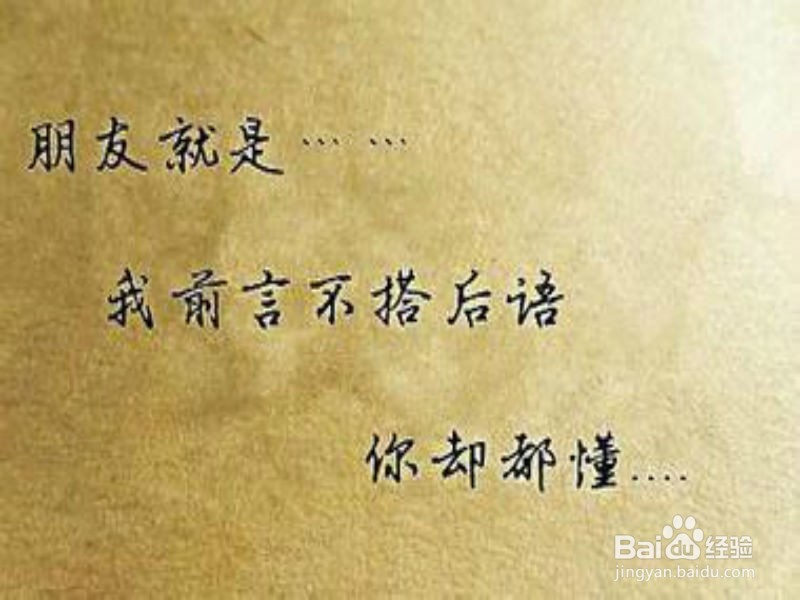 朋友就是……
我前言不搭后语
你却都懂....
Bai du 经验
jingyan.baidu.com